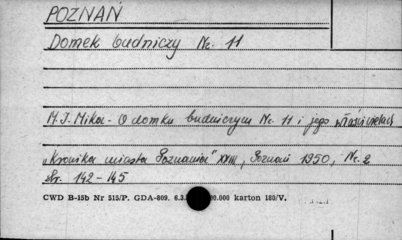 POZNAŃ
Domek budniczy Nr. 11
M.J. Mika - O domku budniczym Nr. 11 i jego właścicielach
„Kronika miasta Poznania" XXIII, Poznań 1950, Nr. 2
Str. 142-145
CWD B-15b Nr 515/P. GDA-809. 6.3. 00.000 karton 180/V.